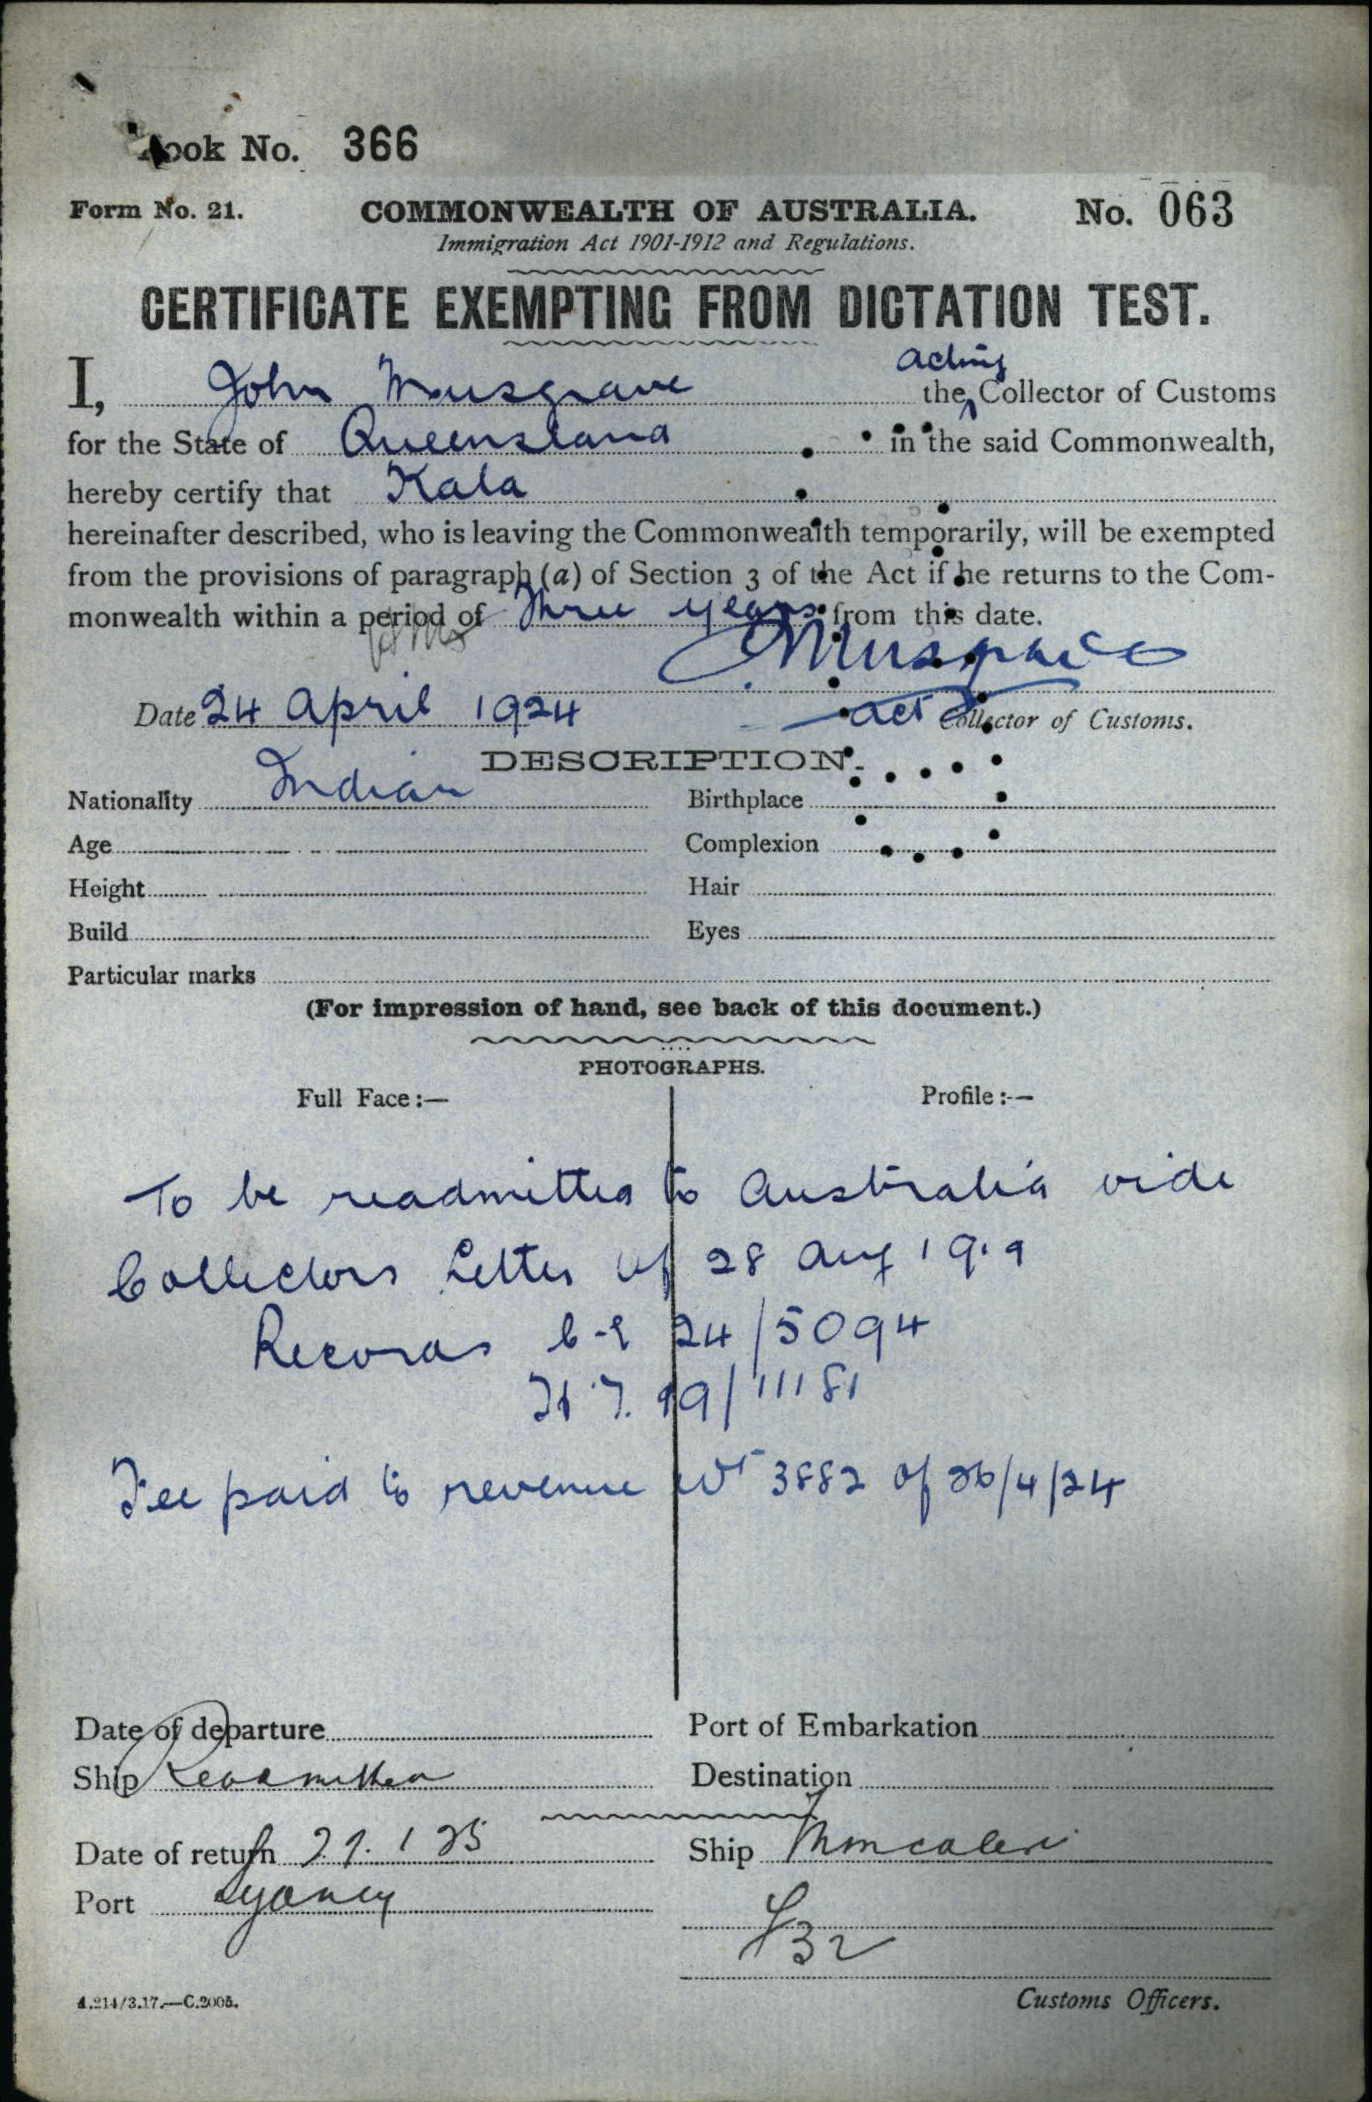 Book No. 366
Form No. 21. COMMONWEALTH OF AUSTRALIA. No. 063
Immigration Act 1901-1912 and Regulations.
CERTIFICATE EXEMPTING FROM DICTATION TEST.
I, John Musgrave the acting Collector of Customs
for the State of Queensland in the said Commonwealth,
hereby certify that Kala
hereinafter described, who is leaving the Commonwealth temporarily, will be exempted
from the provisions of paragraph (a) of Section 3 of the Act if he returns to the Com-
monwealth within a period of Three years from this date.
J Musgrave
Date 24 April 1924 act Collector of Customs.
DESCRIPTION.
Nationality Indian Birthplace
Age Complexion
Height Hair
Build Eyes
Particular marks
(For impression of hand, see back of this document.)
PHOTOGRAPHS.
Full Face:— Profile:—
To be readmitted to Australia vide
Collectors Letter of 28 Aug 1919
Records C-E 24/5094
H.T. 19/11181
Fee paid to revenue 3882 of 26/4/24
Date of departure Port of Embarkation
Ship Readmitted Destination
Date of return 27.1 25 Ship Moncalieri
Port Sydney
Customs Officers.